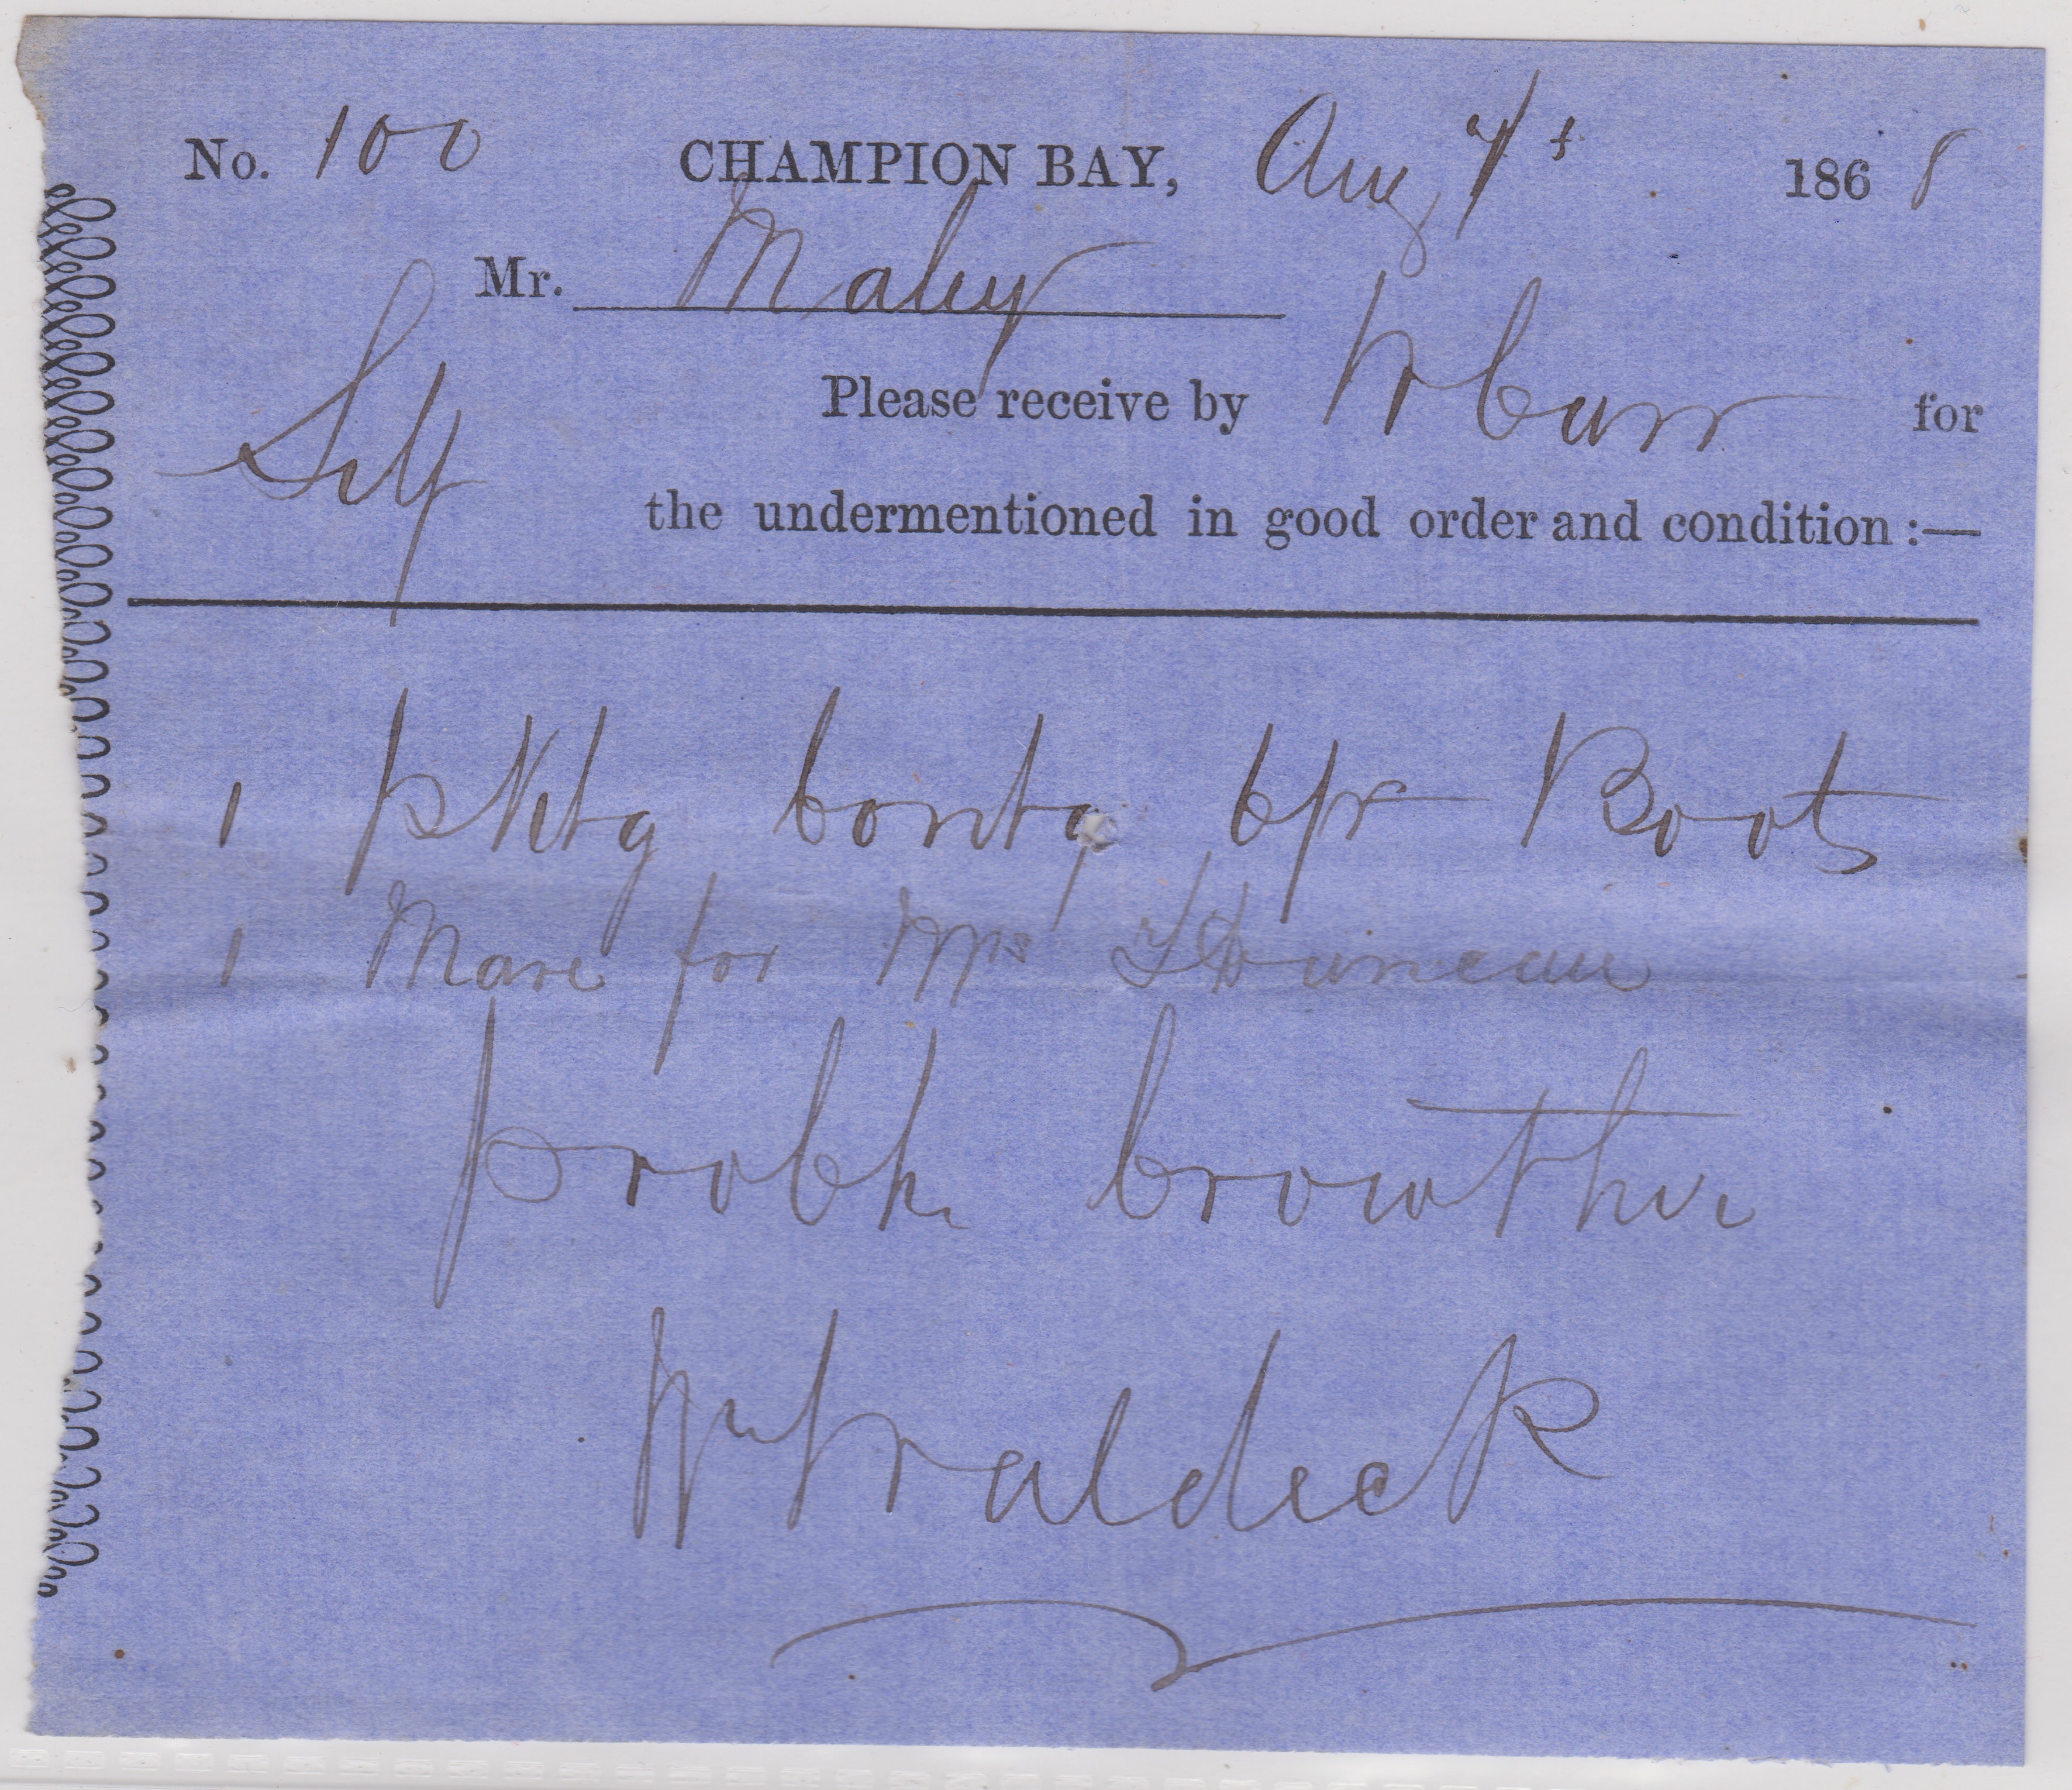 No. 100 CHAMPION BAY, Aug 7t 1868
Mr. Maley
Please receive by W Carr for
Self
the undermentioned in good order and condition :—
1 pktg Contg 6 pr Boots
1 Mare for Mrs Duncan
pro Crowther
Wm Waldeck